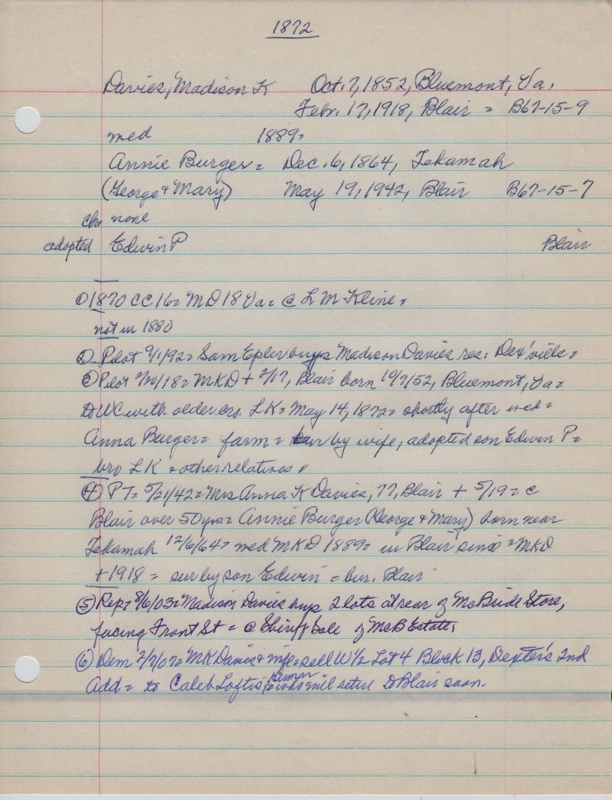 1872
Davies, Madison K Oct. 7, 1852, Bluemont, Va.
Febr. 17, 1918, Blair = B67-15-9
med 1889=
Annie Burger = Dec. 6, 1864, Tekamah
(George & Mary) May 19, 1942, Blair B67-15-7
chr none
adopted Edwin P Blair
① 1870 CC 16 = MD 18 Va = @ L M Kline =
not in 1880
② Pilot 9/1/92 = Sam Epler buys Madison Davies res. Dex'ville =
③ Pilot 2/20/18 = MKD + 2/17, Blair born 10/7/52, Bluemont, Va =
WC with older bro. L K = May 14, 1872 = shortly after med =
Anna Burger = farm = sur by wife, adopted son Edwin P =
bro L K & other relatives =
④ PT = 5/21/42 = Mrs Anna K Davies, 77, Blair + 5/19 = @
Blair over 50 yrs = Annie Burger (George & Mary) born near
Tekamah 12/6/64 = med MKD 1889 = in Blair since = MKD
+ 1918 = sur by son Edwin = bur. Blair
⑤ Rep = 8/6/03 = Madison Davies buys 2 lots at rear of McBride Store,
facing Front St = @ Sheriff Sale of McB Estate,
⑥ Dem 2/7/07 = MK Davies & wife sell W 1/2 Lot 4 Block 13, Dexter's 2nd
Add = to Caleb Loftis will retire to Blair soon.